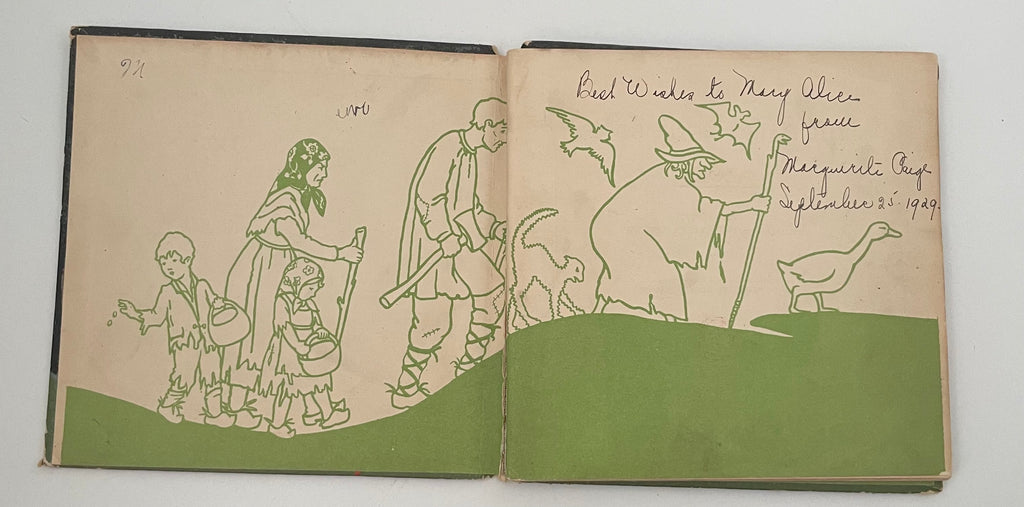 Best Wishes to Mary Alice
from
Marguerite Paige
September 25. 1929.